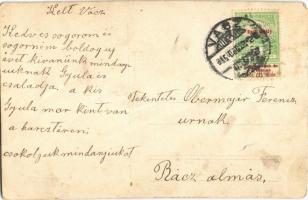 Kelt Vász
Kedves sogorom és
sogornöm boldog uj
évet kivánunk mindnyá
juuknak Gyula és
családja. a kis
Gyula mar kint van
a harcztéren
csokoljuk mindnyájukat
VÁSZ
Tekintetes Obermajár Ferencz
urnak
Rácz almás,